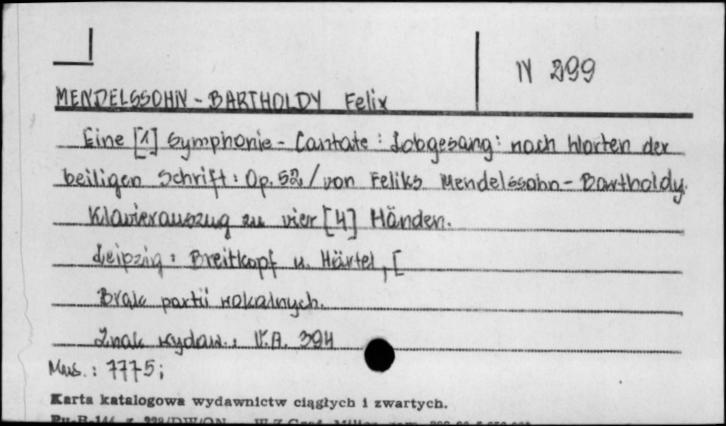 IV 299
MENDELSSOHN - BARTHOLDY Felix
Eine [1] Symphonie - Cantate : Lobgesang : nach Worten der
heiligen Schrift : Op. 52 / von Feliks Mendelssohn - Bartholdy.
Klavierauszug zu vier [4] Händen.
Leipzig : Breitkopf u. Härtel, [
Brak partii wokalnych.
Znak wydaw. : V.A. 394
Mus. : 7775;
Karta katalogowa wydawnictw ciągłych i zwartych.